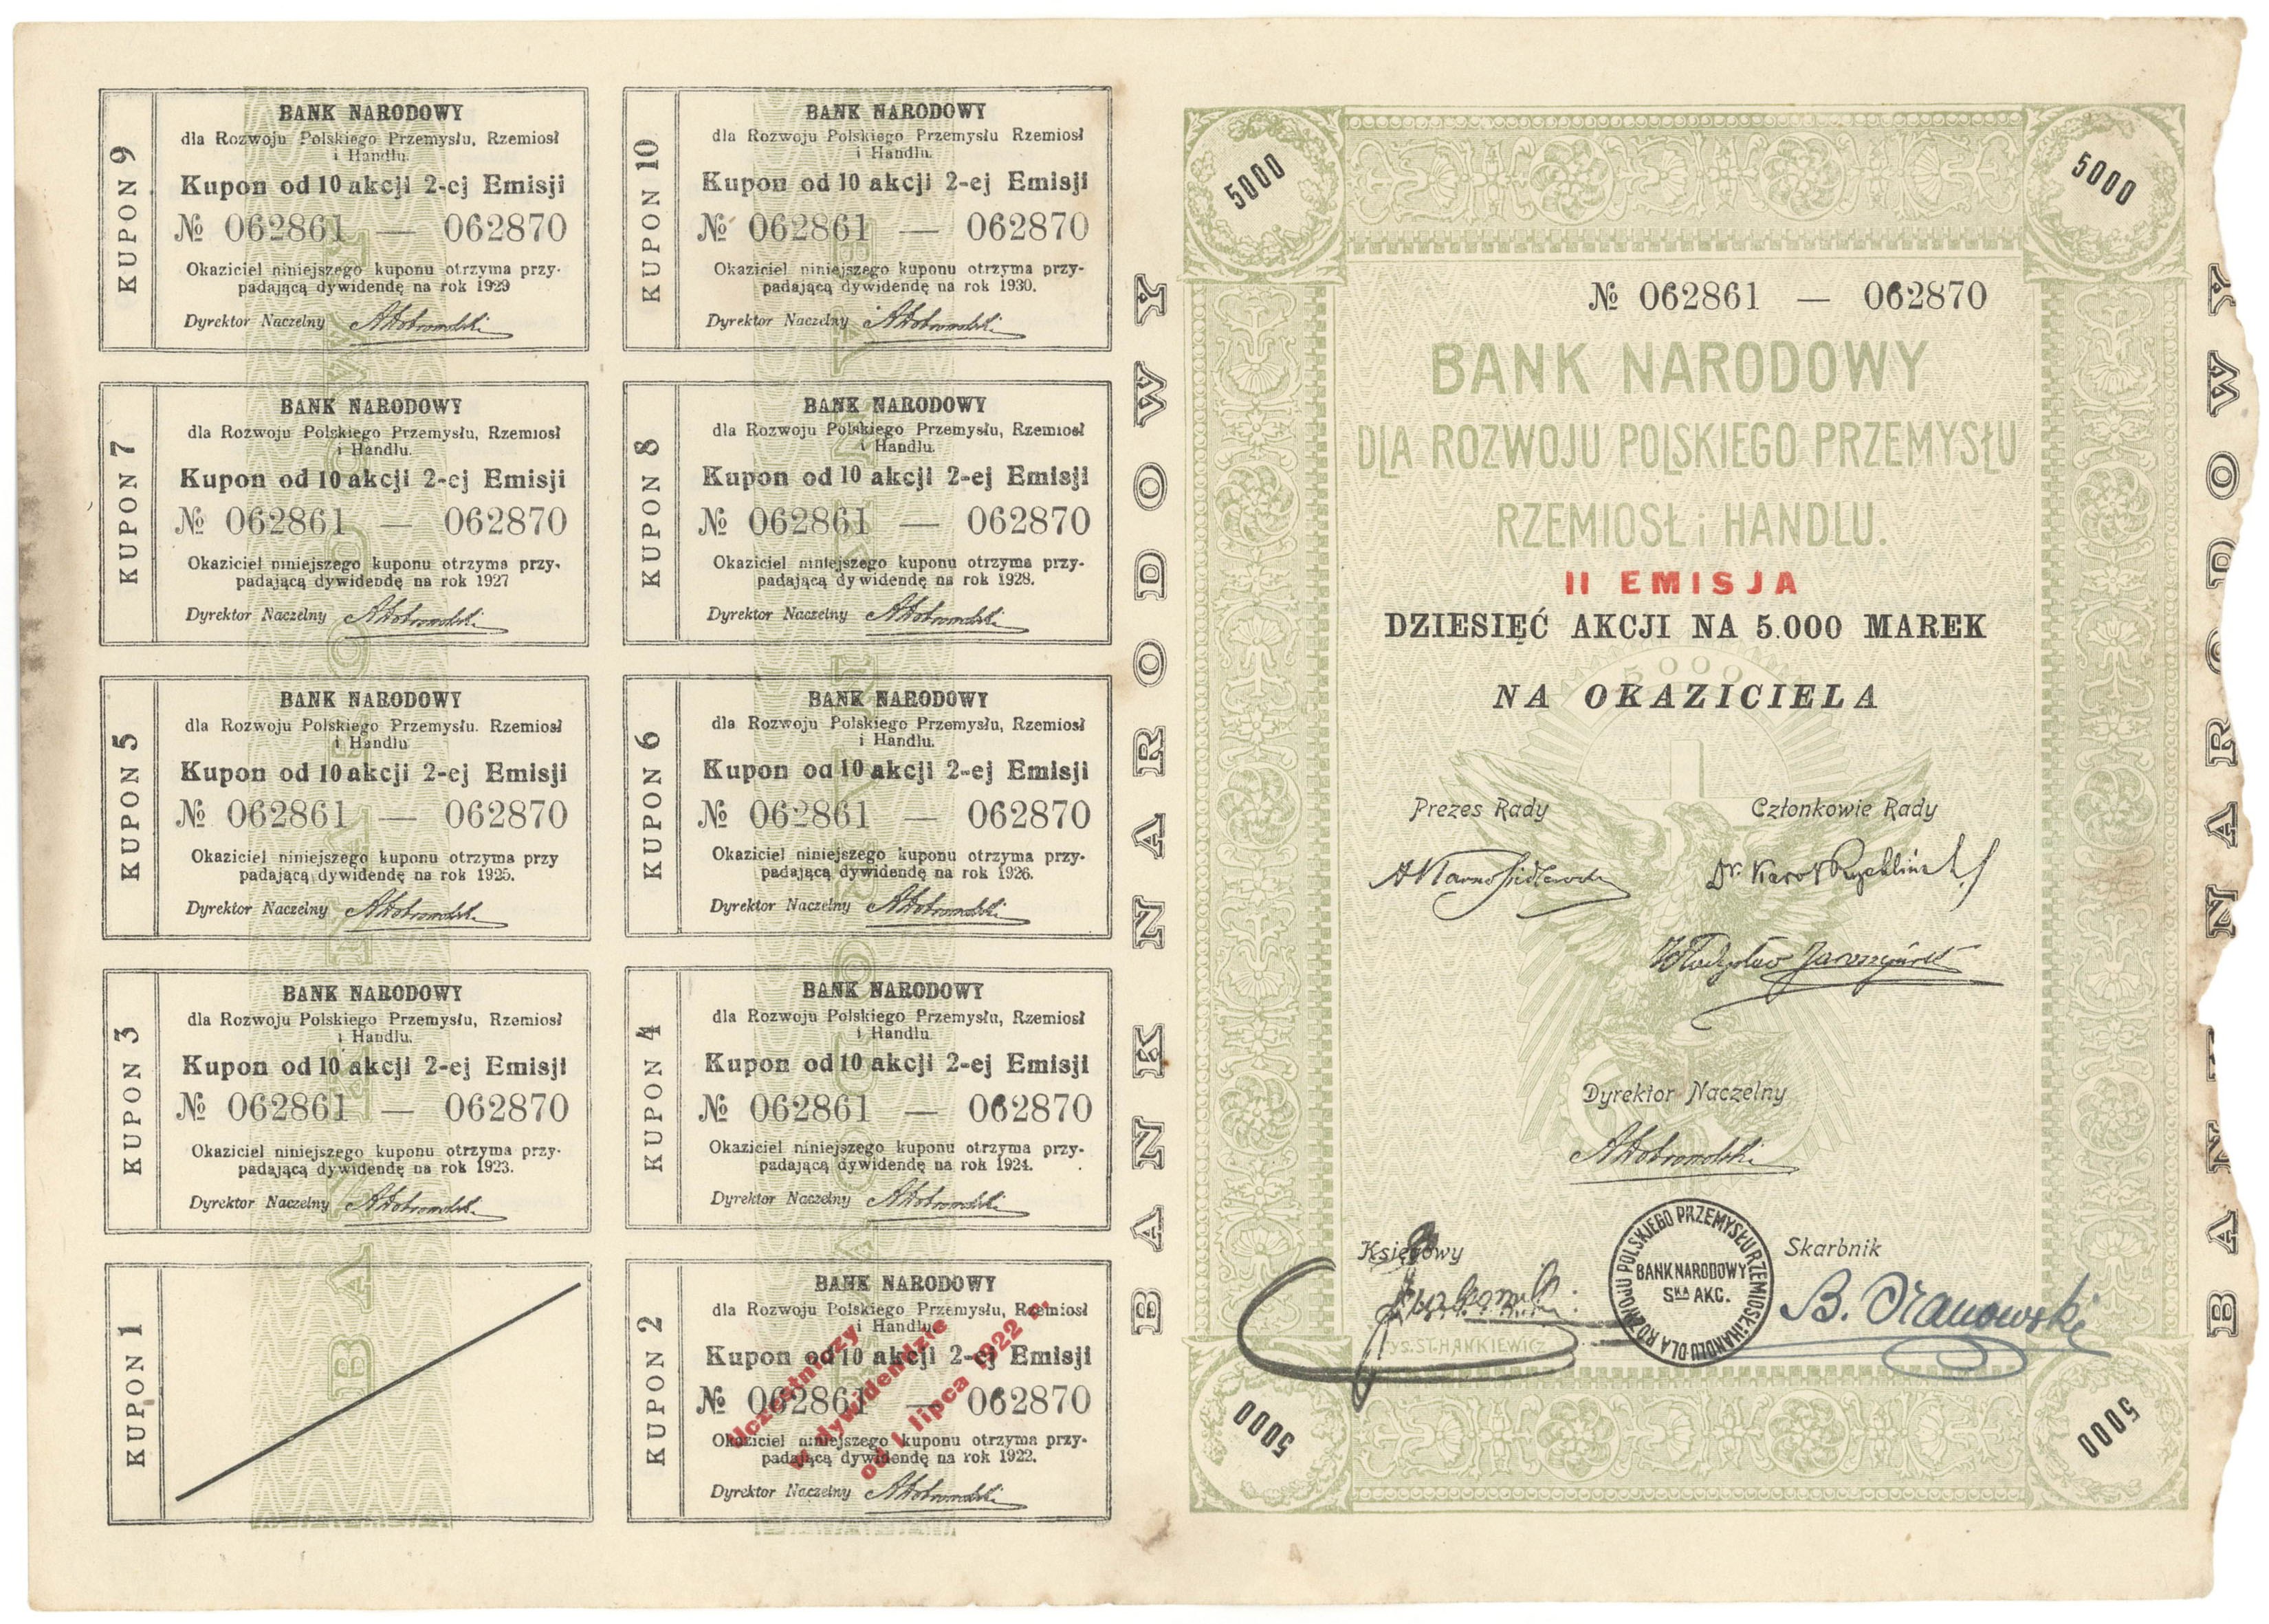 KUPON 9
BANK NARODOWY
dla Rozwoju Polskiego Przemysłu, Rzemiosł
i Handlu.
Kupon od 10 akcji 2-ej Emisji
№ 062861 — 062870
Okaziciel niniejszego kuponu otrzyma przy-
padającą dywidendę na rok 1929
Dyrektor Naczelny
KUPON 10
BANK NARODOWY
dla Rozwoju Polskiego Przemysłu Rzemiosł
i Handlu.
Kupon od 10 akcji 2-ej Emisji
№ 062861 — 062870
Okaziciel niniejszego kuponu otrzyma przy-
padającą dywidendę na rok 1930.
Dyrektor Naczelny
KUPON 7
BANK NARODOWY
dla Rozwoju Polskiego Przemysłu, Rzemiosł
i Handlu.
Kupon od 10 akcji 2-ej Emisji
№ 062861 — 062870
Okaziciel niniejszego kuponu otrzyma przy-
padającą dywidendę na rok 1927
Dyrektor Naczelny
KUPON 8
BANK NARODOWY
dla Rozwoju Polskiego Przemysłu, Rzemiosł
i Handlu.
Kupon od 10 akcji 2-ej Emisji
№ 062861 — 062870
Okaziciel niniejszego kuponu otrzyma przy-
padającą dywidendę na rok 1928.
Dyrektor Naczelny
KUPON 5
BANK NARODOWY
dla Rozwoju Polskiego Przemysłu. Rzemiosł
i Handlu
Kupon od 10 akcji 2-ej Emisji
№ 062861 — 062870
Okaziciel niniejszego kuponu otrzyma przy
padającą dywidendę na rok 1925.
Dyrektor Naczelny
KUPON 6
BANK NARODOWY
dla Rozwoju Polskiego Przemysłu, Rzemiosł
i Handlu.
Kupon od 10 akcji 2-ej Emisji
№ 062861 — 062870
Okaziciel niniejszego kuponu otrzyma przy-
padającą dywidendę na rok 1926.
Dyrektor Naczelny
KUPON 3
BANK NARODOWY
dla Rozwoju Polskiego Przemysłu, Rzemiosł
i Handlu.
Kupon od 10 akcji 2-ej Emisji
№ 062861 — 062870
Okaziciel niniejszego kuponu otrzyma przy-
padającą dywidendę na rok 1923.
Dyrektor Naczelny
KUPON 4
BANK NARODOWY
dla Rozwoju Polskiego Przemysłu, Rzemiosł
i Handlu
Kupon od 10 akcji 2-ej Emisji
№ 062861 — 062870
Okaziciel niniejszego kuponu otrzyma przy-
padającą dywidendę na rok 1924.
Dyrektor Naczelny
KUPON 1
KUPON 2
BANK NARODOWY
dla Rozwoju Polskiego Przemysłu, Rzemiosł
i Handlu
Kupon od 10 akcji 2-ej Emisji
№ 062861 — 062870
Okaziciel niniejszego kuponu otrzyma przy-
padającą dywidendę na rok 1922.
Dyrektor Naczelny
Uczestniczy
w dywidendzie
od 1 lipca 1922 r.
BANK NARODOWY
5000
5000
№ 062861 — 062870
BANK NARODOWY
DLA ROZWOJU POLSKIEGO PRZEMYSŁU
RZEMIOSŁ i HANDLU.
II EMISJA
DZIESIĘĆ AKCJI NA 5.000 MAREK
5000
NA OKAZICIELA
Prezes Rady
Członkowie Rady
Dr. Karol Rychliński
Władysław Jaroszyński
Dyrektor Naczelny
Księgowy
Skarbnik
DLA ROZWOJU POLSKIEGO PRZEMYSŁU RZEMIOSŁ i HANDLU
BANK NARODOWY
SKA AKC.
RYS. ST. HANKIEWICZ
5000
5000
BANK NARODOWY